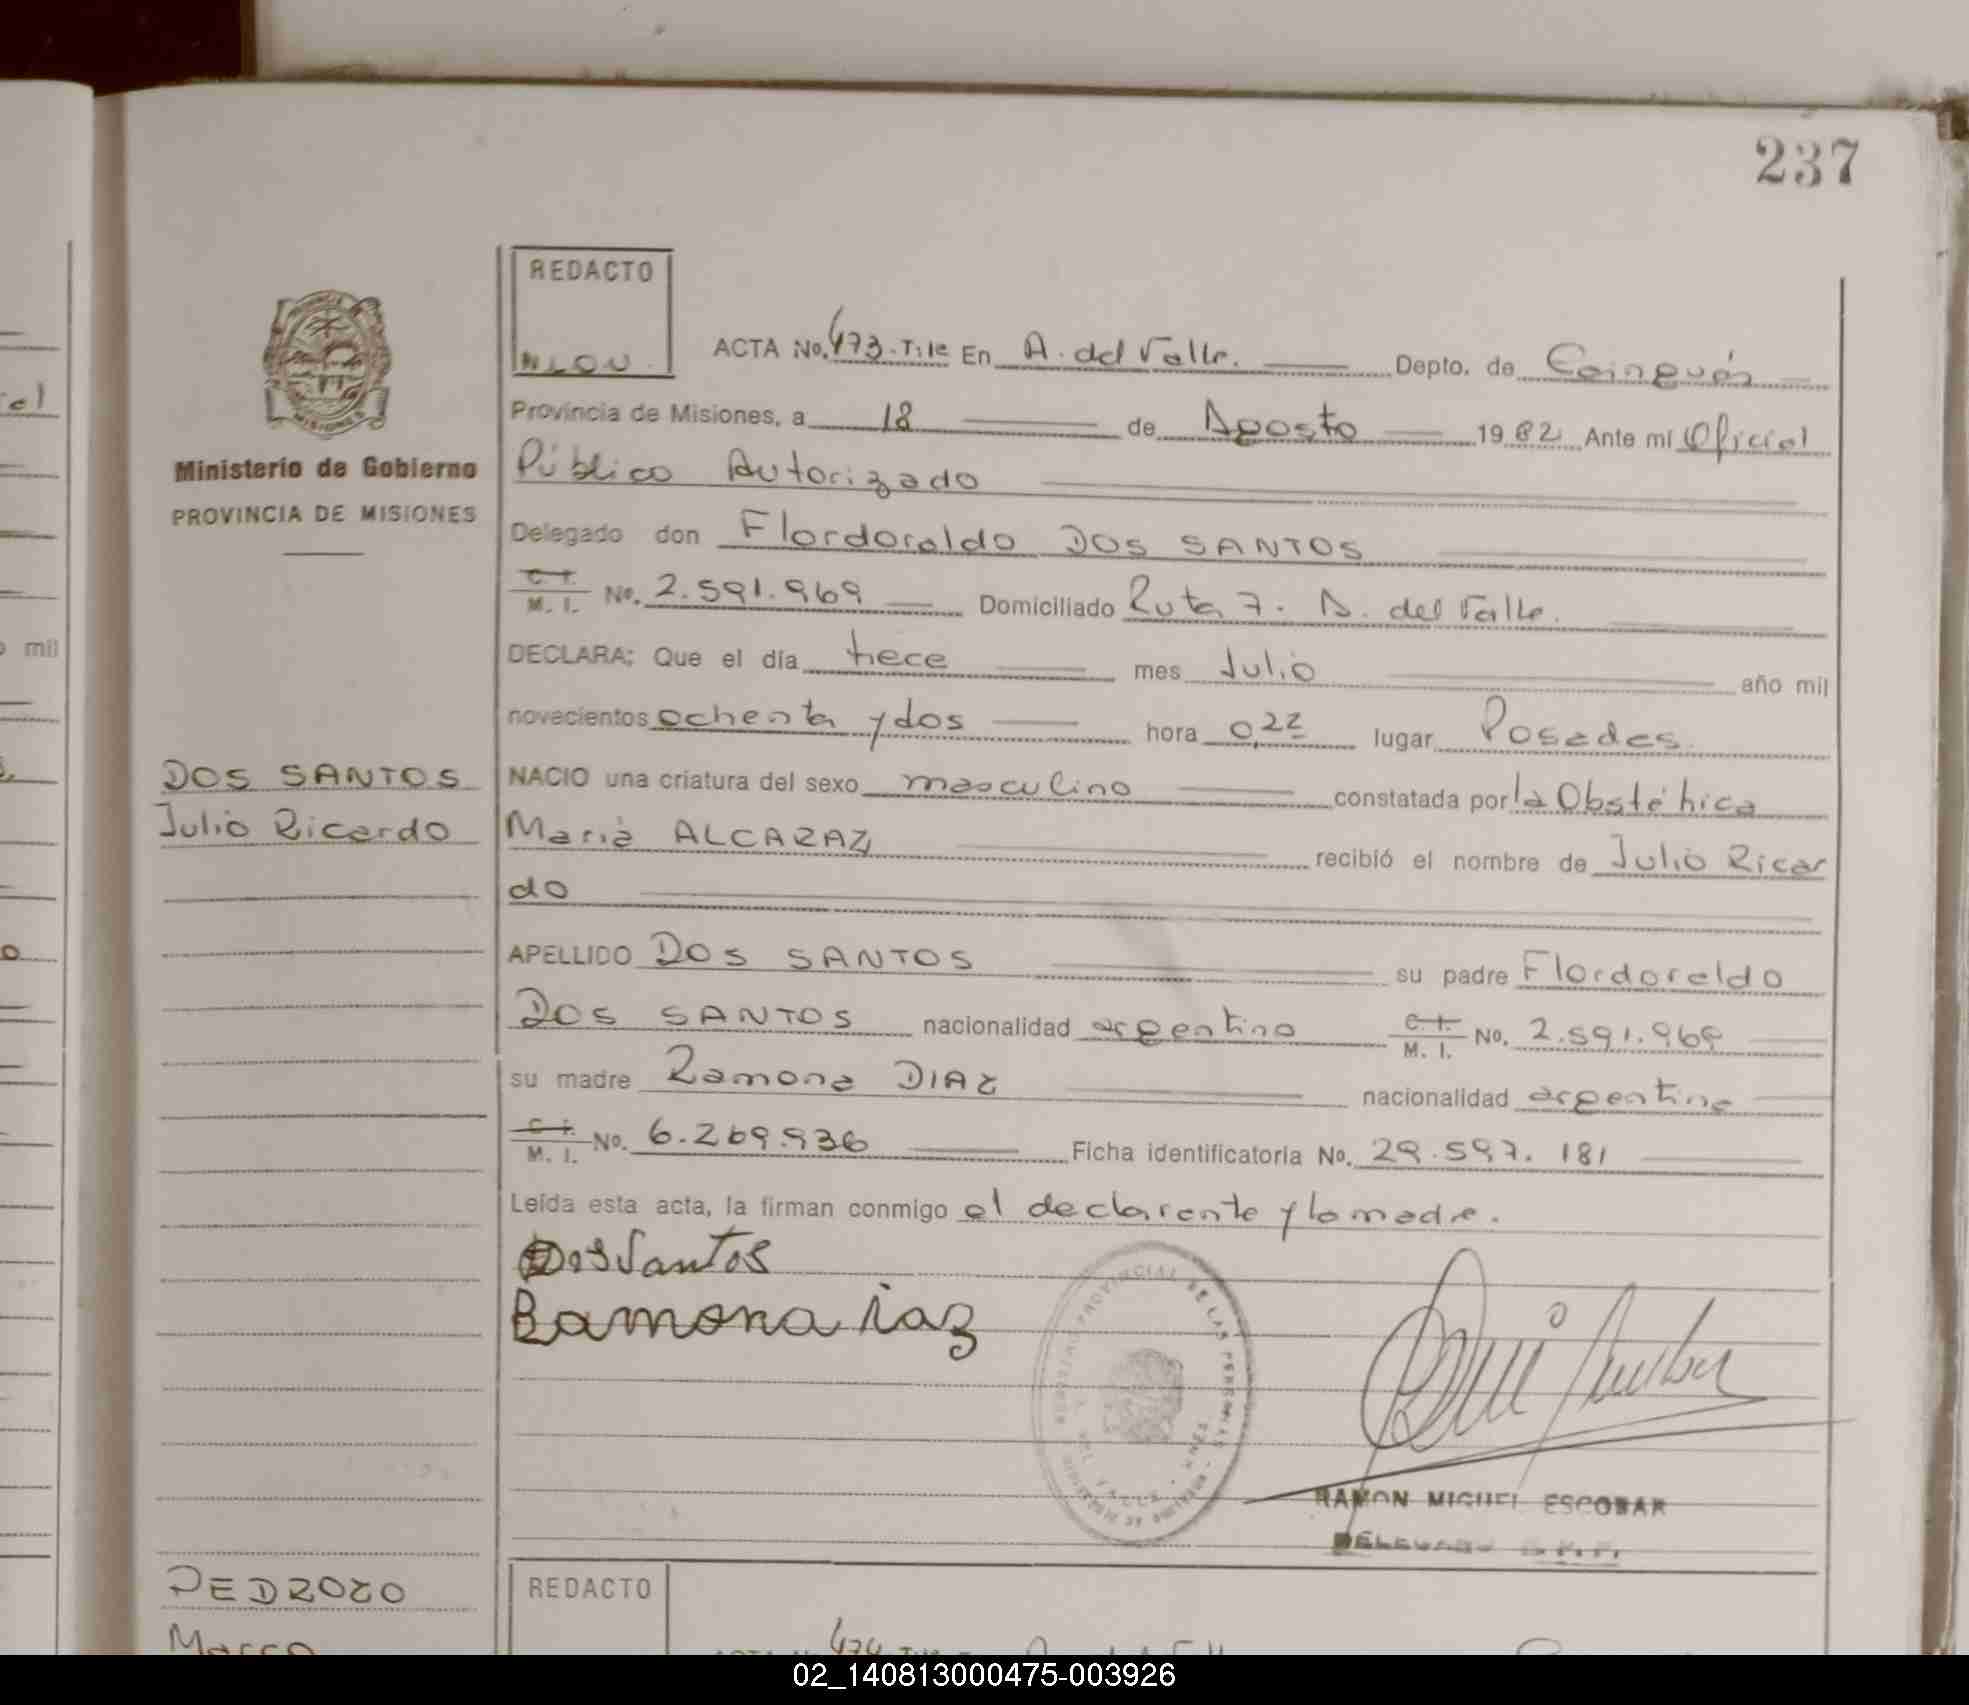 237
REDACTO
ACTA No. 473. T: 1e En A. del Valle. Depto. de Cainguás
Provincia de Misiones, a 18 de Agosto 1982 Ante mí Oficial
Ministerio de Gobierno
PROVINCIA DE MISIONES
Público Autorizado
Delegado don Flordoraldo DOS SANTOS
C. I.
M. I. No. 2.591.969 Domiciliado Ruta 7. A. del Valle.
DECLARA: Que el día trece mes Julio año mil
novecientos ochenta y dos hora 0,22 lugar Posadas
DOS SANTOS
Julio Ricardo
NACIO una criatura del sexo masculino constatada por la Obstétrica
María ALCARAZ recibió el nombre de Julio Ricar
do
APELLIDO DOS SANTOS su padre Flordoraldo
DOS SANTOS nacionalidad argentino C. I.
M. I. No. 2.591.969
su madre Ramona DIAZ nacionalidad argentina
C. I.
M. I. No. 6.269.936 Ficha identificatoria No. 29.597.181
Leída esta acta, la firman conmigo el declarante y la madre.
Dos Santos
Ramona iaz
RAMON MIGUEL ESCOBAR
PEDROZO
REDACTO
02_140813000475-003926